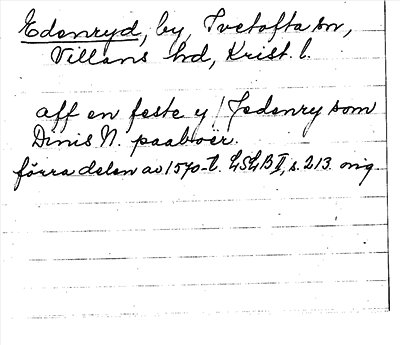 Edenryd, by, Ivetofta sn,
Villans hd, Krist. l.
aff en feste y / Jedenry som
Dinis N. paaboer.
förra delen av 1570-t. LSLB II, s. 213. orig